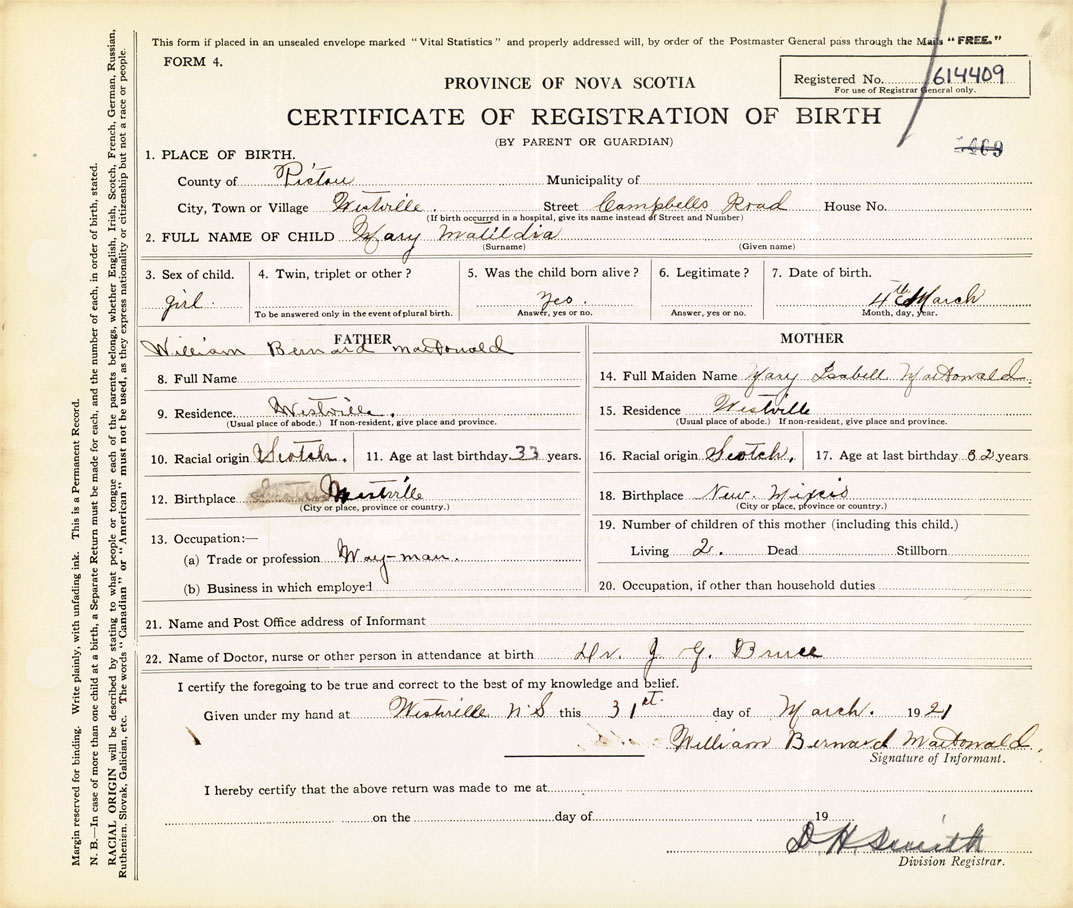 This form if placed in an unsealed envelope marked "Vital Statistics" and properly addressed will, by order of the Postmaster General pass through the Mails "FREE."
FORM 4.
Registered No. 614409
For use of Registrar General only.
PROVINCE OF NOVA SCOTIA
CERTIFICATE OF REGISTRATION OF BIRTH
(BY PARENT OR GUARDIAN)
1. PLACE OF BIRTH.
County of Pictou Municipality of
City, Town or Village Westville. Street Campbells Road House No.
(If birth occurred in a hospital, give its name instead of Street and Number)
2. FULL NAME OF CHILD Mary Matildia
(Surname) (Given name)
3. Sex of child. 4. Twin, triplet or other? 5. Was the child born alive? 6. Legitimate? 7. Date of birth.
girl. Yes. 4th March
To be answered only in the event of plural birth. Answer, yes or no. Answer, yes or no. Month, day, year.
FATHER
William Bernard MacDonald
8. Full Name
9. Residence. Westville.
(Usual place of abode.) If non-resident, give place and province.
10. Racial origin Scotch. 11. Age at last birthday 33 years.
12. Birthplace Westville
(City or place, province or country.)
13. Occupation:—
(a) Trade or profession Way-man.
(b) Business in which employed
MOTHER
14. Full Maiden Name Mary Isabell MacDonald.
15. Residence Westville
(Usual place of abode.) If non-resident, give place and province.
16. Racial origin Scotch. 17. Age at last birthday 32 years
18. Birthplace New. Mixis
(City or place, province or country.)
19. Number of children of this mother (including this child.)
Living 2. Dead Stillborn
20. Occupation, if other than household duties
21. Name and Post Office address of Informant
22. Name of Doctor, nurse or other person in attendance at birth Dr. J. G. Bruce
I certify the foregoing to be true and correct to the best of my knowledge and belief.
Given under my hand at Westville N.S this 31st. day of March. 1921
William Bernard MacDonald.
Signature of Informant.
I hereby certify that the above return was made to me at
on the day of 19
D H Smith
Division Registrar.
Margin reserved for binding. Write plainly, with unfading ink. This is a Permanent Record.
N. B.—In case of more than one child at a birth, a Separate Return must be made for each, and the number of each, in order of birth, stated.
RACIAL ORIGIN will be described by stating to what people or tongue each of the parents belongs, whether English, Irish, Scotch, French, German, Russian,
Ruthenian, Slovak, Galician, etc. The words "Canadian" or "American" must not be used, as they express nationality or citizenship but not a race or people.